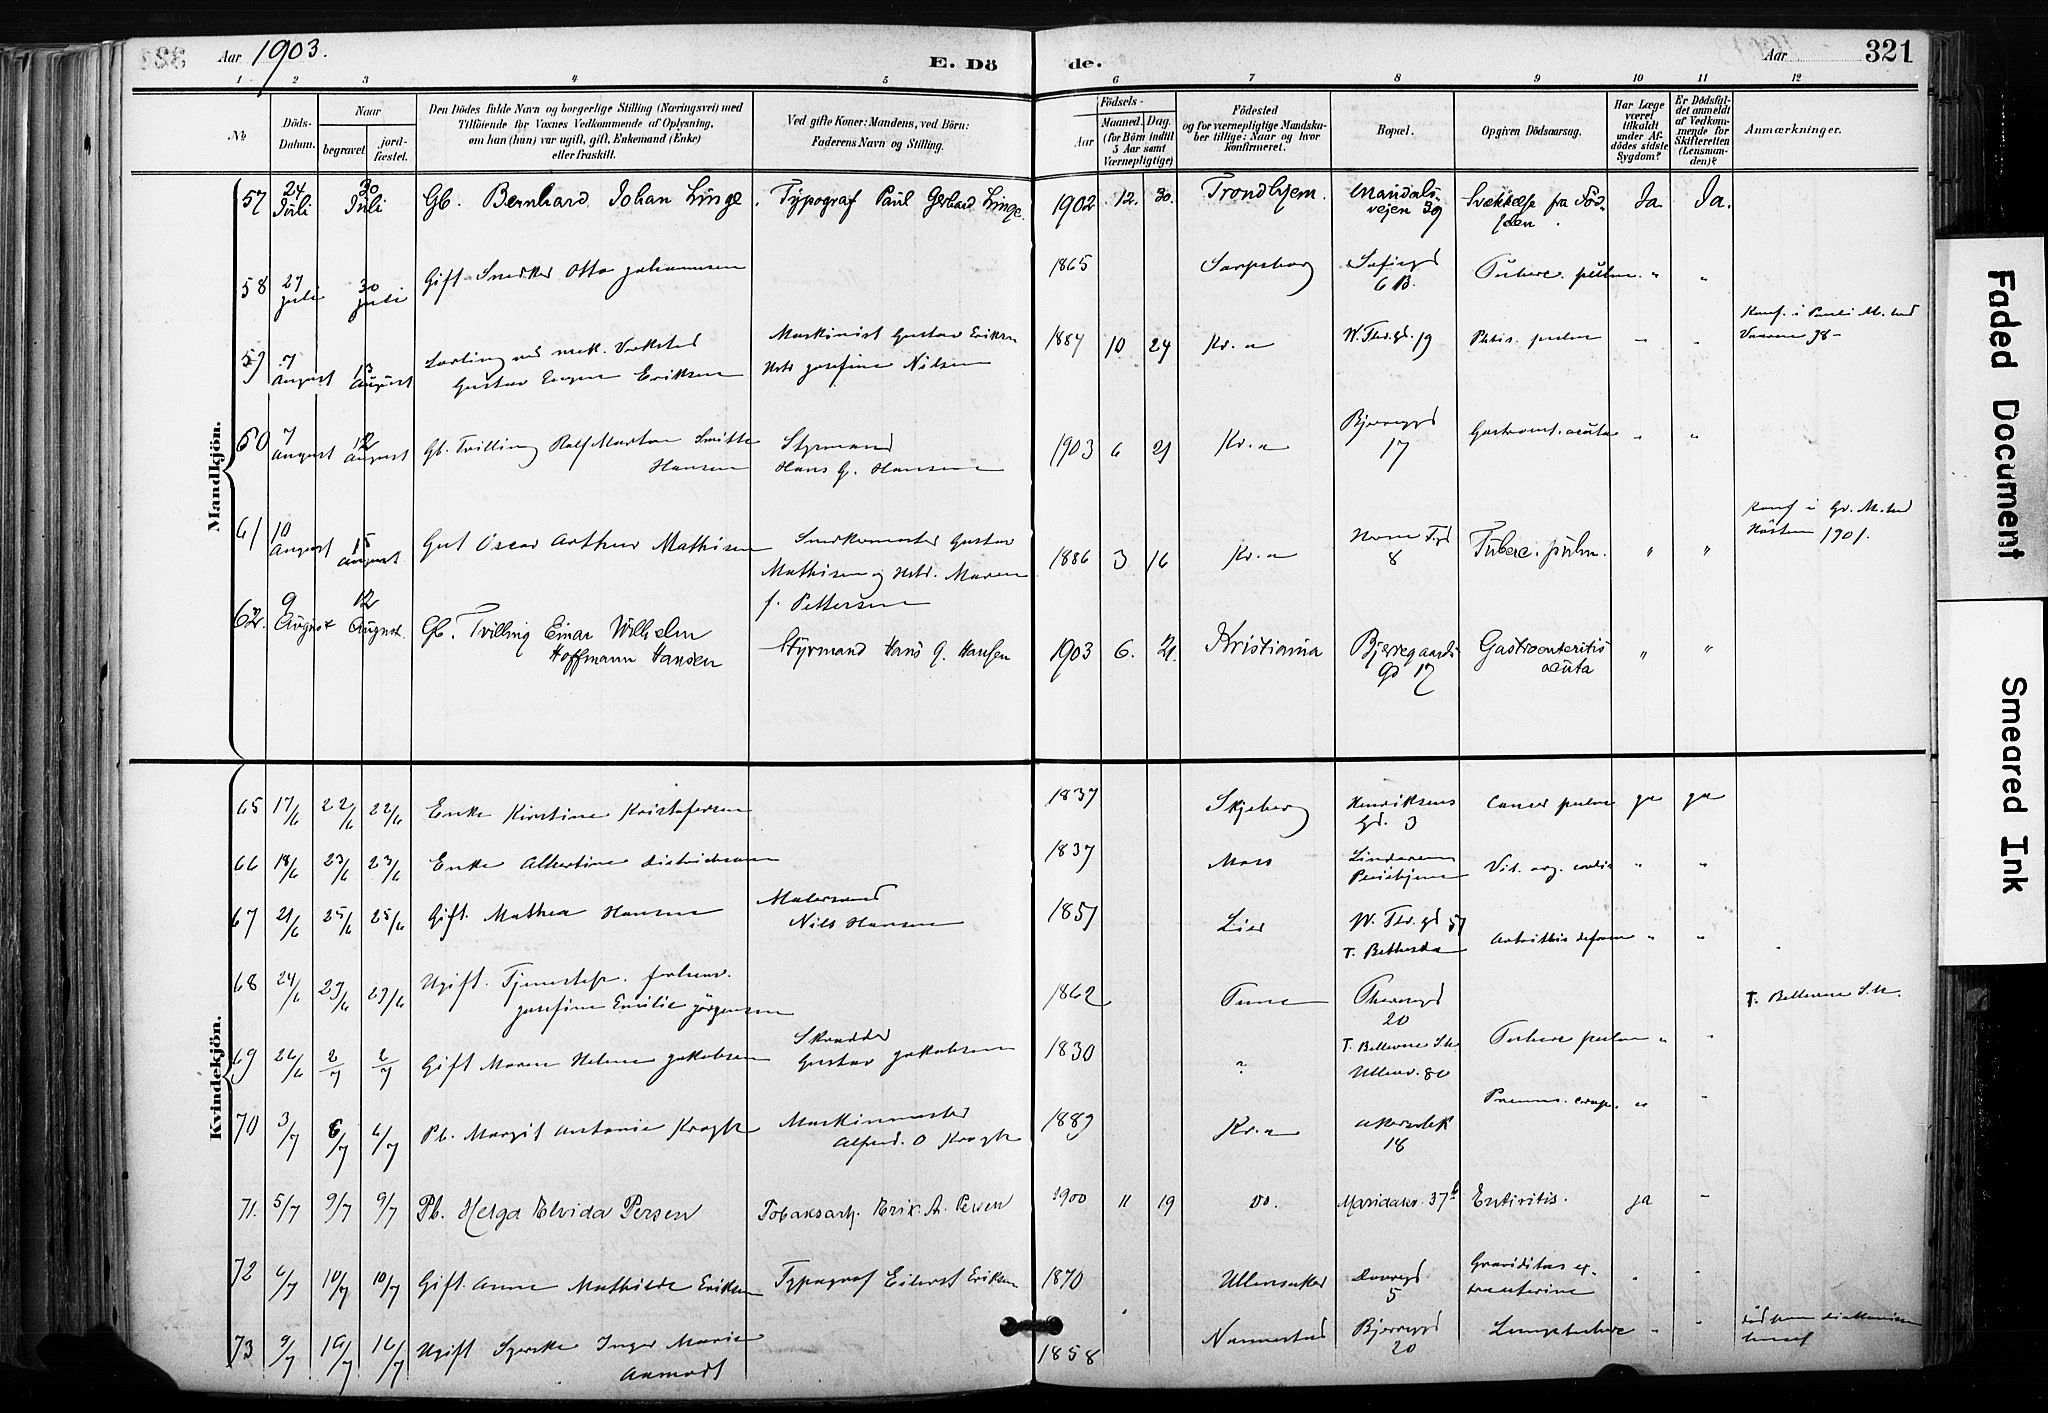 321
Aar 1903.
E. Dö de.
Aar
321
1 2 3 4 5 6 7 8 9 10 11 12
№
Döds-Datum.
Naar
begravet.
jordfæstet.
Den Dödes fulde Navn og borgerlige Stilling (Næringsvei) med
Tilföiende for Voxnes Vedkommende af Oplysning,
om han (hun) var ugift, gift, Enkemand (Enke)
eller fraskilt.
Ved gifte Koner: Mandens, ved Börn:
Faderens Navn og Stilling.
Födsels-
Aar
Maaned. Dag.
(for Börn indtil
5 Aar samt
Værnepligtige)
Födested
og for værnepligtige Mandska-
ber tillige: Naar og hvor
konfirmeret.
Bopæl.
Opgiven Dödsaarsag.
Har Læge
været
tilkaldt
under Af-
dödes sidste
Sygdom?
Er Dödsfal-
det anmeldt
af Vedkom-
mende for
Skifteretten
(Lensman-
den)?
Anmærkninger.
Mandkjön.
57 24 Juli 30 Juli Gb. Bernhard Johan Linge. Typograf Paul Gerhard Linge. 1902 12. 30. Trondhjem. Mandals-
vejen 39 Svækkelse fra Fød-
selen. Ja Ja.
58 27 juli 30 juli Gift Snedker Otto Johannesen 1865 Sarpsborg Sofiegd
6 B. Tuberc. pulm. " "
59 7 August 13 August Lærling ved mek. Verksted
Gustav Eugen Eriksen Maskinist Gustav Eriksen
Hstr Josefine Nilsen 1884 10 24 Kr.a W. Thr. gd. 19 Phtis. pulm " " Konf. i Pauli M. ved
Vaaren 98-
60 7 August 12 August Gb. Tvilling Ralf Marton Smitte
Hansen Styrmand
Hans G. Hansen 1903 6 21 Kr.a Bjerregd
17 Gastroent. acuta " "
61 10 August 15 August Gut Oscar Arthur Mathisen Snedkermester Gustav
Mathisen og Hstr. Maren
f. Pettersen 1886 3 16 Kr.a 8 Tuberc. pulm. " " Konf. i Gr. M. ved
Høsten 1901.
62. 9 August 12 August. Gb. Tvilling Einar Wilhelm
Hoffmann Hansen Styrmand Hans G. Hansen 1903 6. 21. Kristiania Bjerregaards
gd 17 Gastroenteritis
acuta " "
Kvindekjön.
65 17/6 22/6 22/6 Enke Kirstine Kristofersen 1837 Skjeberg Henriksens
gd. 3 Cancer pulm ja ja
66 18/6 23/6 23/6 Enke Albertine Didriksen 1837 Moss Vit. org. cordis " "
67 21/6 25/6 25/6 Gift. Mathea Hansen Malersvend
Nils Hansen 1851 Lier W. Thr. gd 57
T. Bethesda Arthritis deform " "
68 24/6 29/6 29/6 Ugift. Tjenestep. forhenv.
Josefine Emilie Jörgensen 1862 Tune Thorvegd
20 T. Bellevue S.H.
69 26/6 2/7 2/7 Gift Maren Helene Jakobsen Skrædder
Gustav Jakobsen 1830 ? T. Bellevue S.H.
Ullevv. 80 Tuberc pulm " "
70 3/7 6/7 6/7 Pb. Margit Antonie Krogh Maskinmester
Alfred. O Krogh 1889 Kr.a Akersbk
18 Pneum. croup. " "
71. 5/7 9/7 9/7 Pb. Helga Elvida Persen Tobaksarb. Erik A. Persen 1900 11 19 Do. Maridalsv. 37 b Entiritis. ja "
72 6/7 10/7 10/7 Gift. Anne Mathilde Eriksen Typograf Eilert Eriksen 1870 Ullensaker Dovregd
5 Graviditas ex-
trauterine " "
73 9/7 16/7 16/7 Ugift Syerske Inger Marie
Aamodt 1858 Nannestad Bjerregd
20 Lungetuberc " "
Faded Document
Smeared Ink